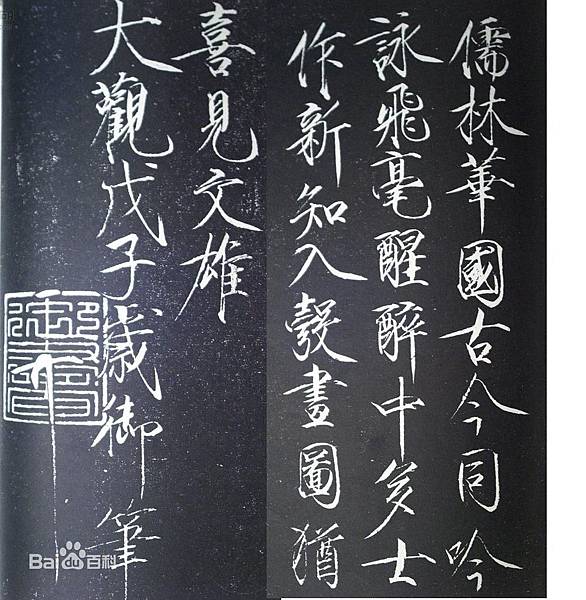 儒林華國古今同吟
詠飛毫醒醉中多士
作新知入彀畫圖猶
喜見文雄
大觀戊子歲御筆
Bai du 百科